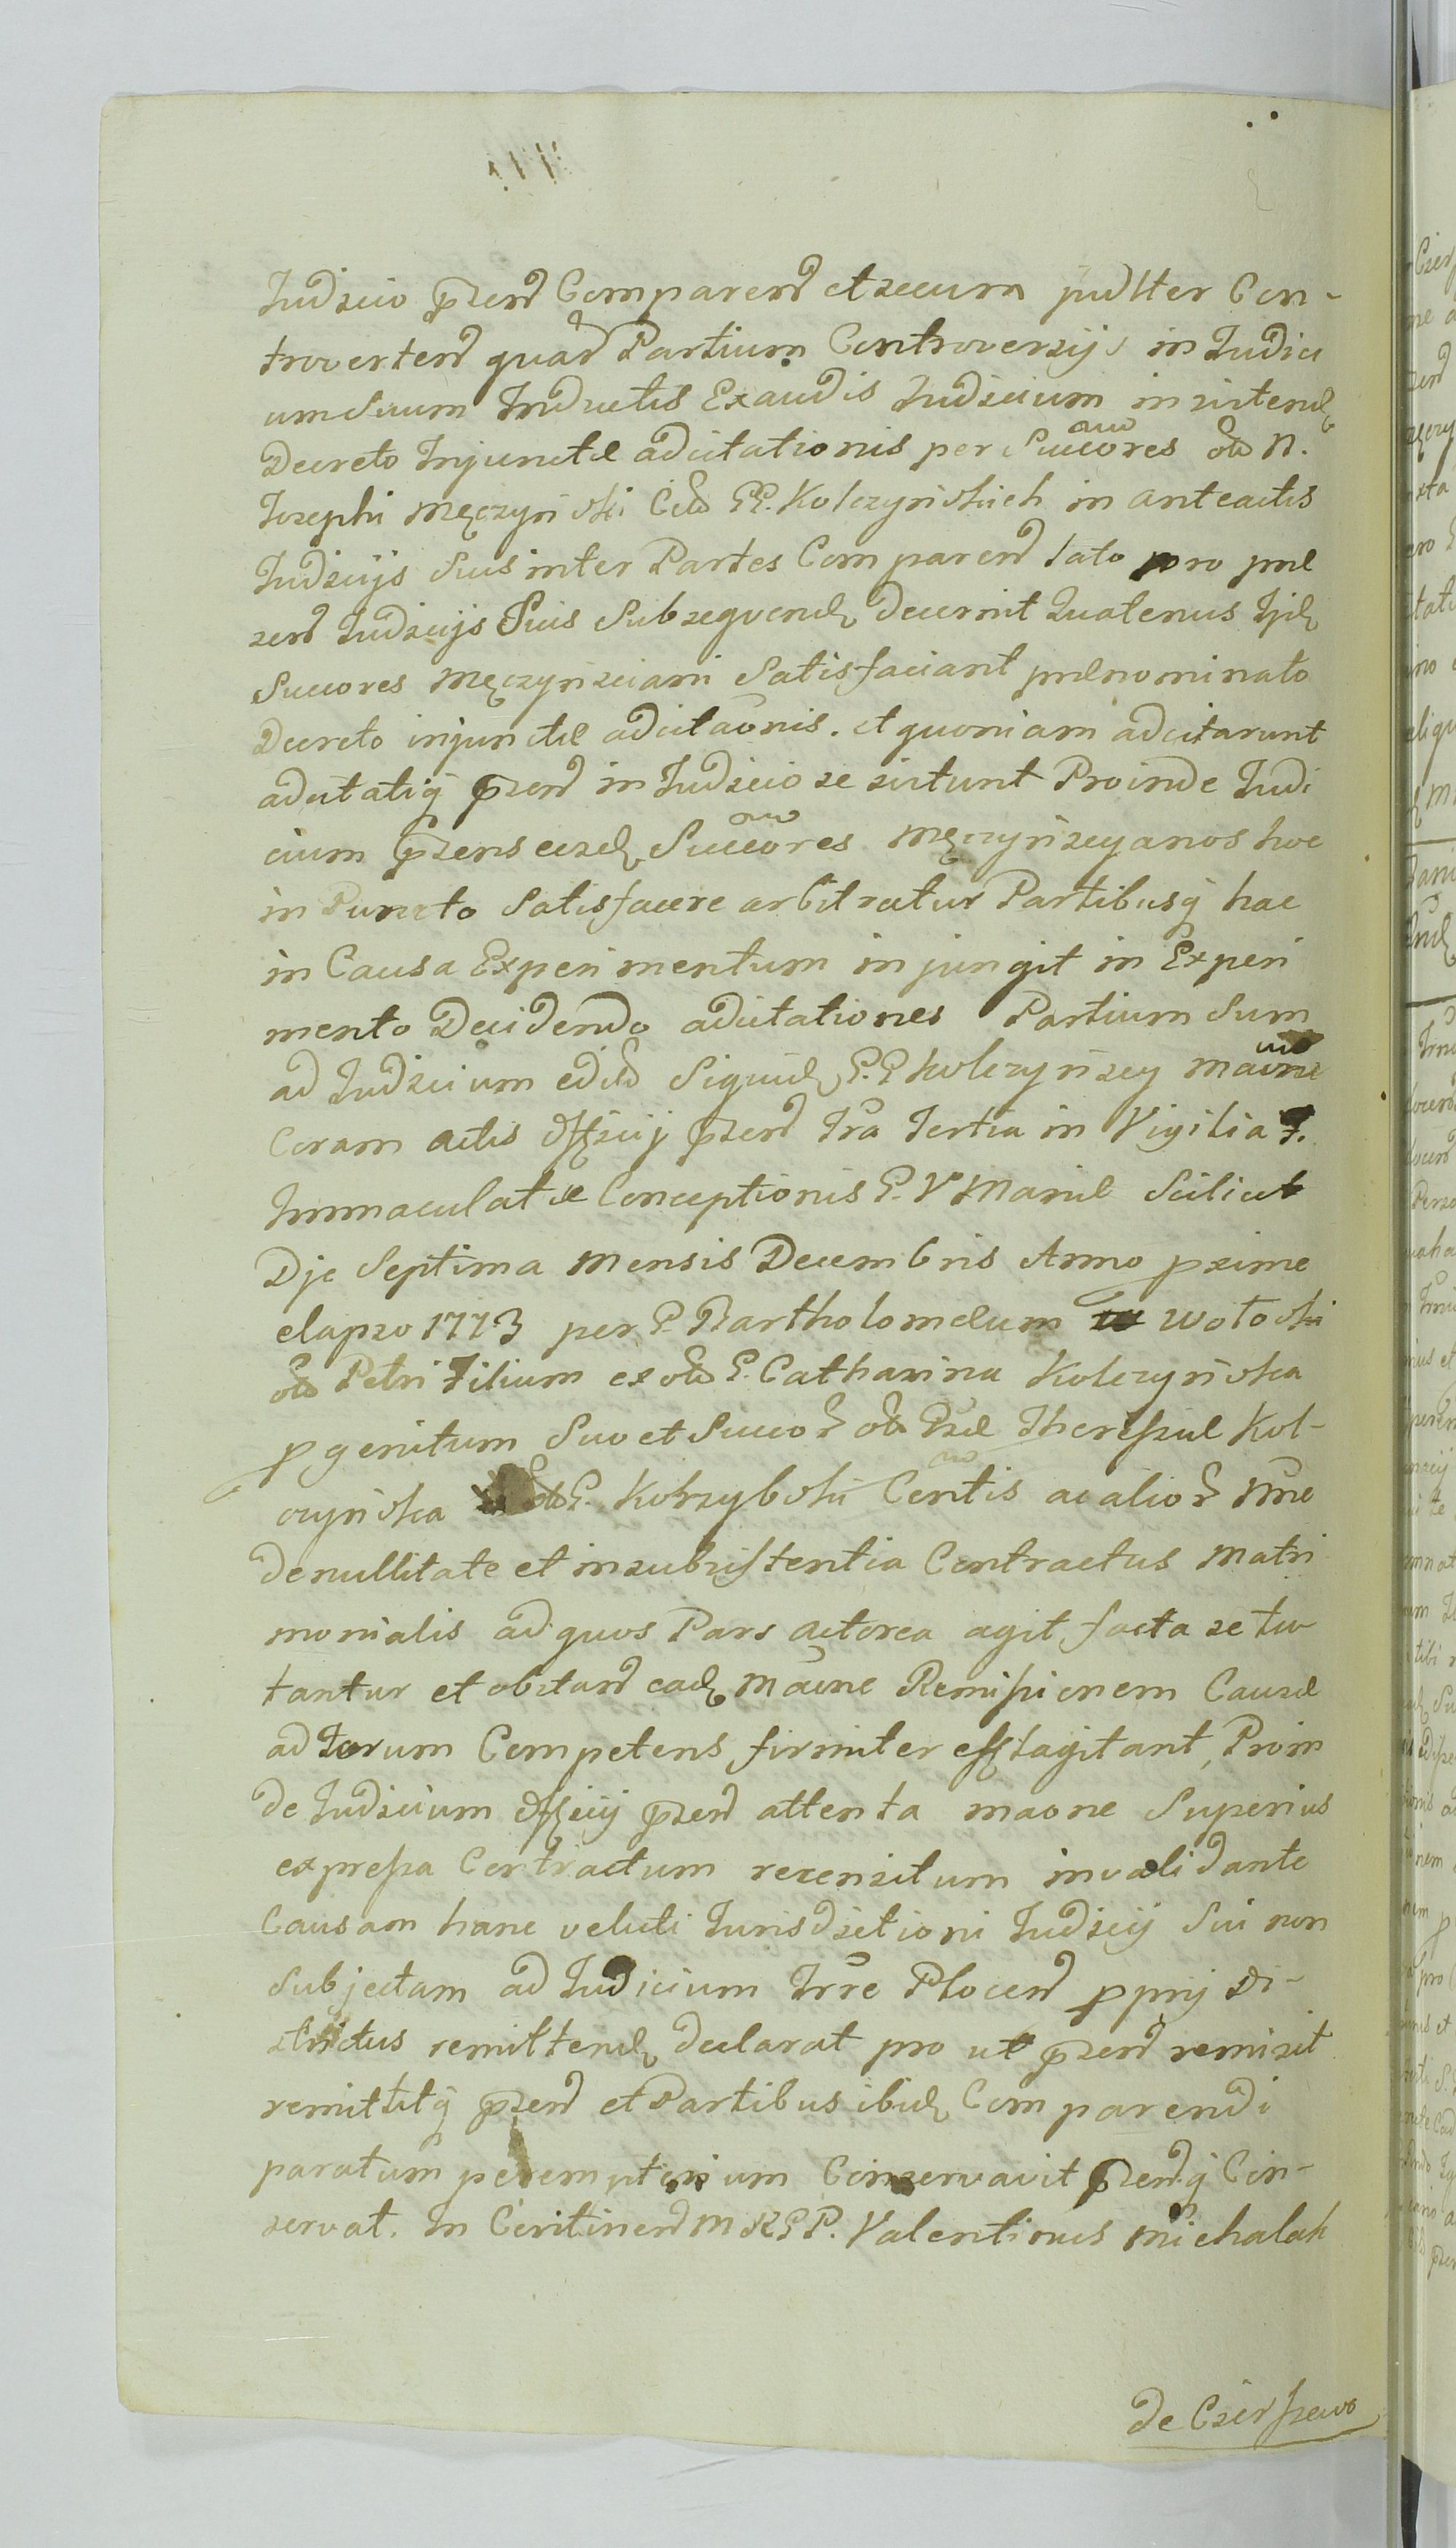 Judicio przend Comparend et secum judlter Con-
trovertend quad Partium Controversijs in Judici
um Suum Inductis Exaudis Judicium insistend
Decreto Injunctæ adcitationis per Succores olo N.
Josephi Męczyński Cto PP. Kolczyńskich in anteactis
Judicijs Suis inter Partes Comparend lato pro præ
zend Judicijs Suis Subsequend decernit Quatenus Ijd
Succores Męczyńsciani Satisfaciant prænominato
Decreto injunctæ adcitaonis. et quoniam adcitarunt
adcitatiq przend in Judicio se sistunt Proinde Judi
cium przens eosd Succores Męczynscyanos hoc
in Puncto Satisfacere arbitratur Partibusq hac
in Causa Experimentum injungit in Experi
mento Decidendo adcitationes Partium Sum
ad Judicium edito Siquid P.P Kolczyńscy maone
Coram actis Officij przend Fra Tertia in Vigilia F.
Immaculatæ Conceptionis P. V Mariæ Scilicet
Dje Septima Mensis Decembris Anno proxime
elapso 1773 per P. Bartholomæum Wołoski
olo Petri Filium ex olo P. Catharina Kolczyńska
pgenitum Suo et Succor olo Psæ Theressiæ Kol-
czyńska olo P. Kobrzybski Centis ac alior Nne
de nullitate et insubsistentia Contractus Matri
monialis ad quos Pars actorea agit facta se tu
tantur et obstand ead maone Remissionem Causæ
ad Forum Competens firmiter efflagitant, Proin
de Judicium Officij przend attenta maone Superius
expressa Contractum recensitum invalidante
Causam hanc veluti Jurisdictioni Judicij Sui non
Subjectam ad Judicium Trre Plocend pprij Di-
strictus remittend declarat pro ut przend remisit
remittitq przend et Partibus ibid Comparendi
paratum peremptorium Conservavit przendq Con-
servat. In Continend M R P P. Valentinus Michalak
de Czerszewo